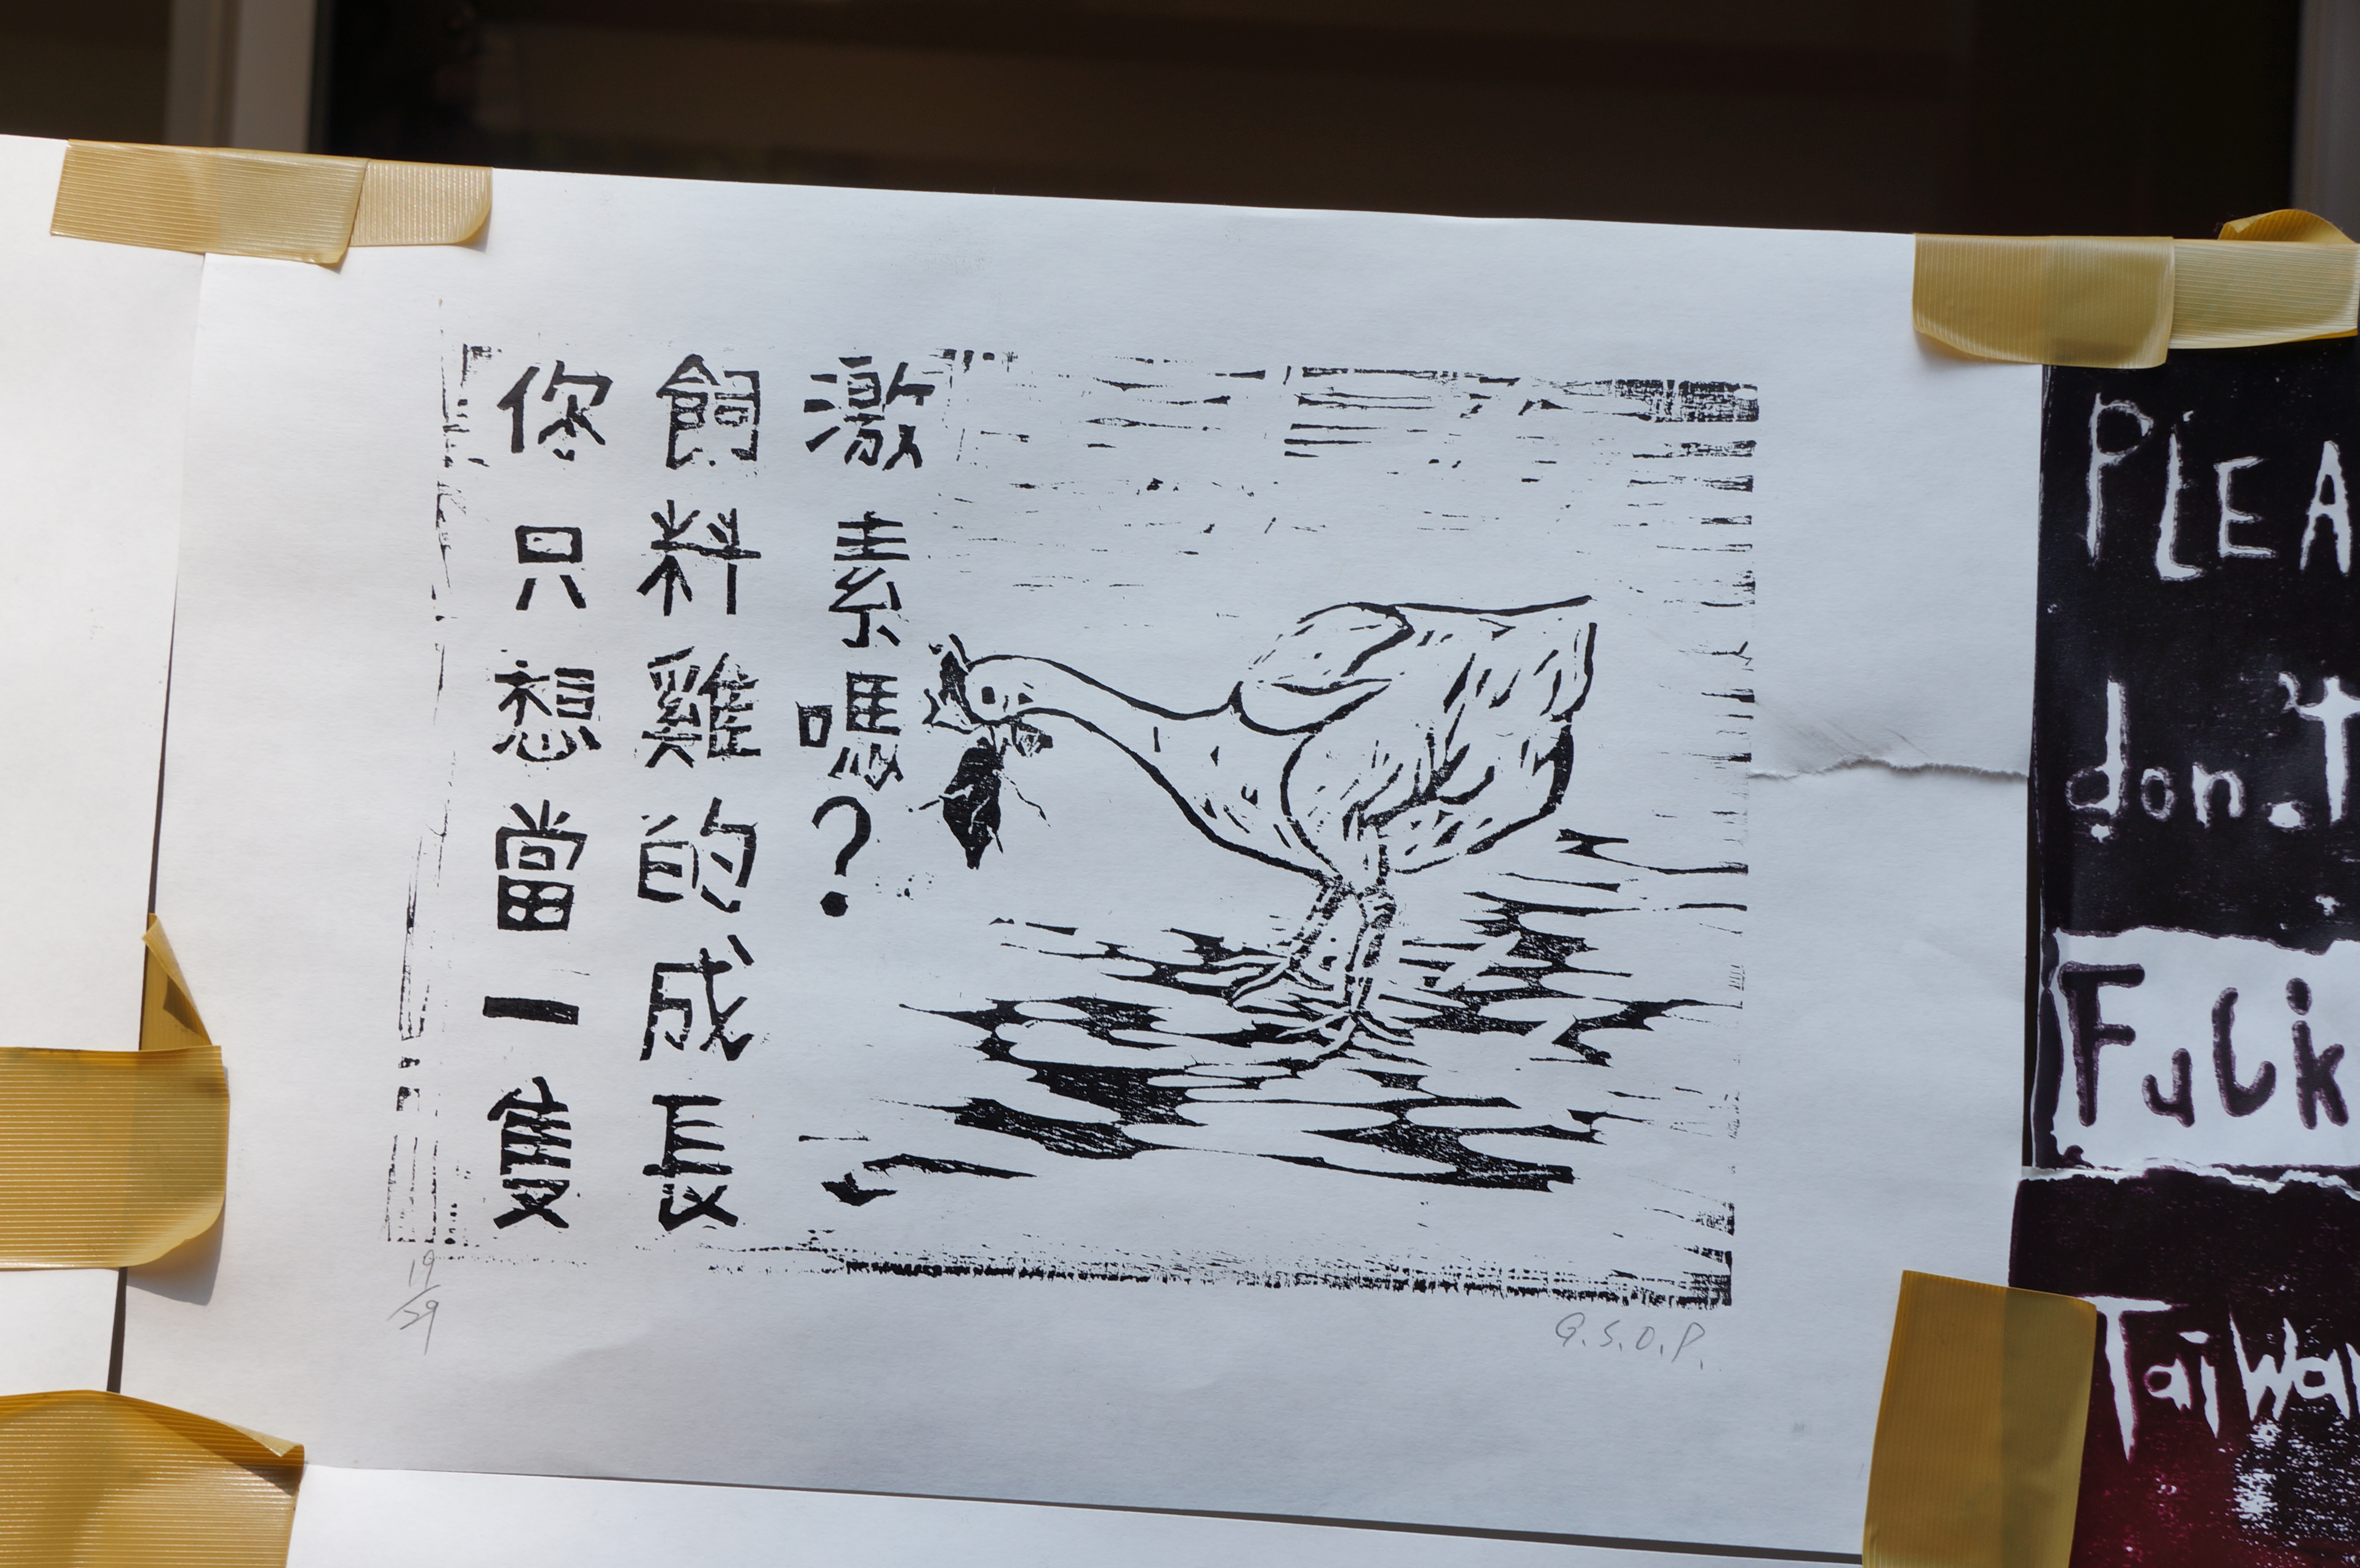 你只想當一隻
飼料雞的成長
激素嗎？
19/29
G.S.O.P.
PLEA
don't
Fuck
TaiWan